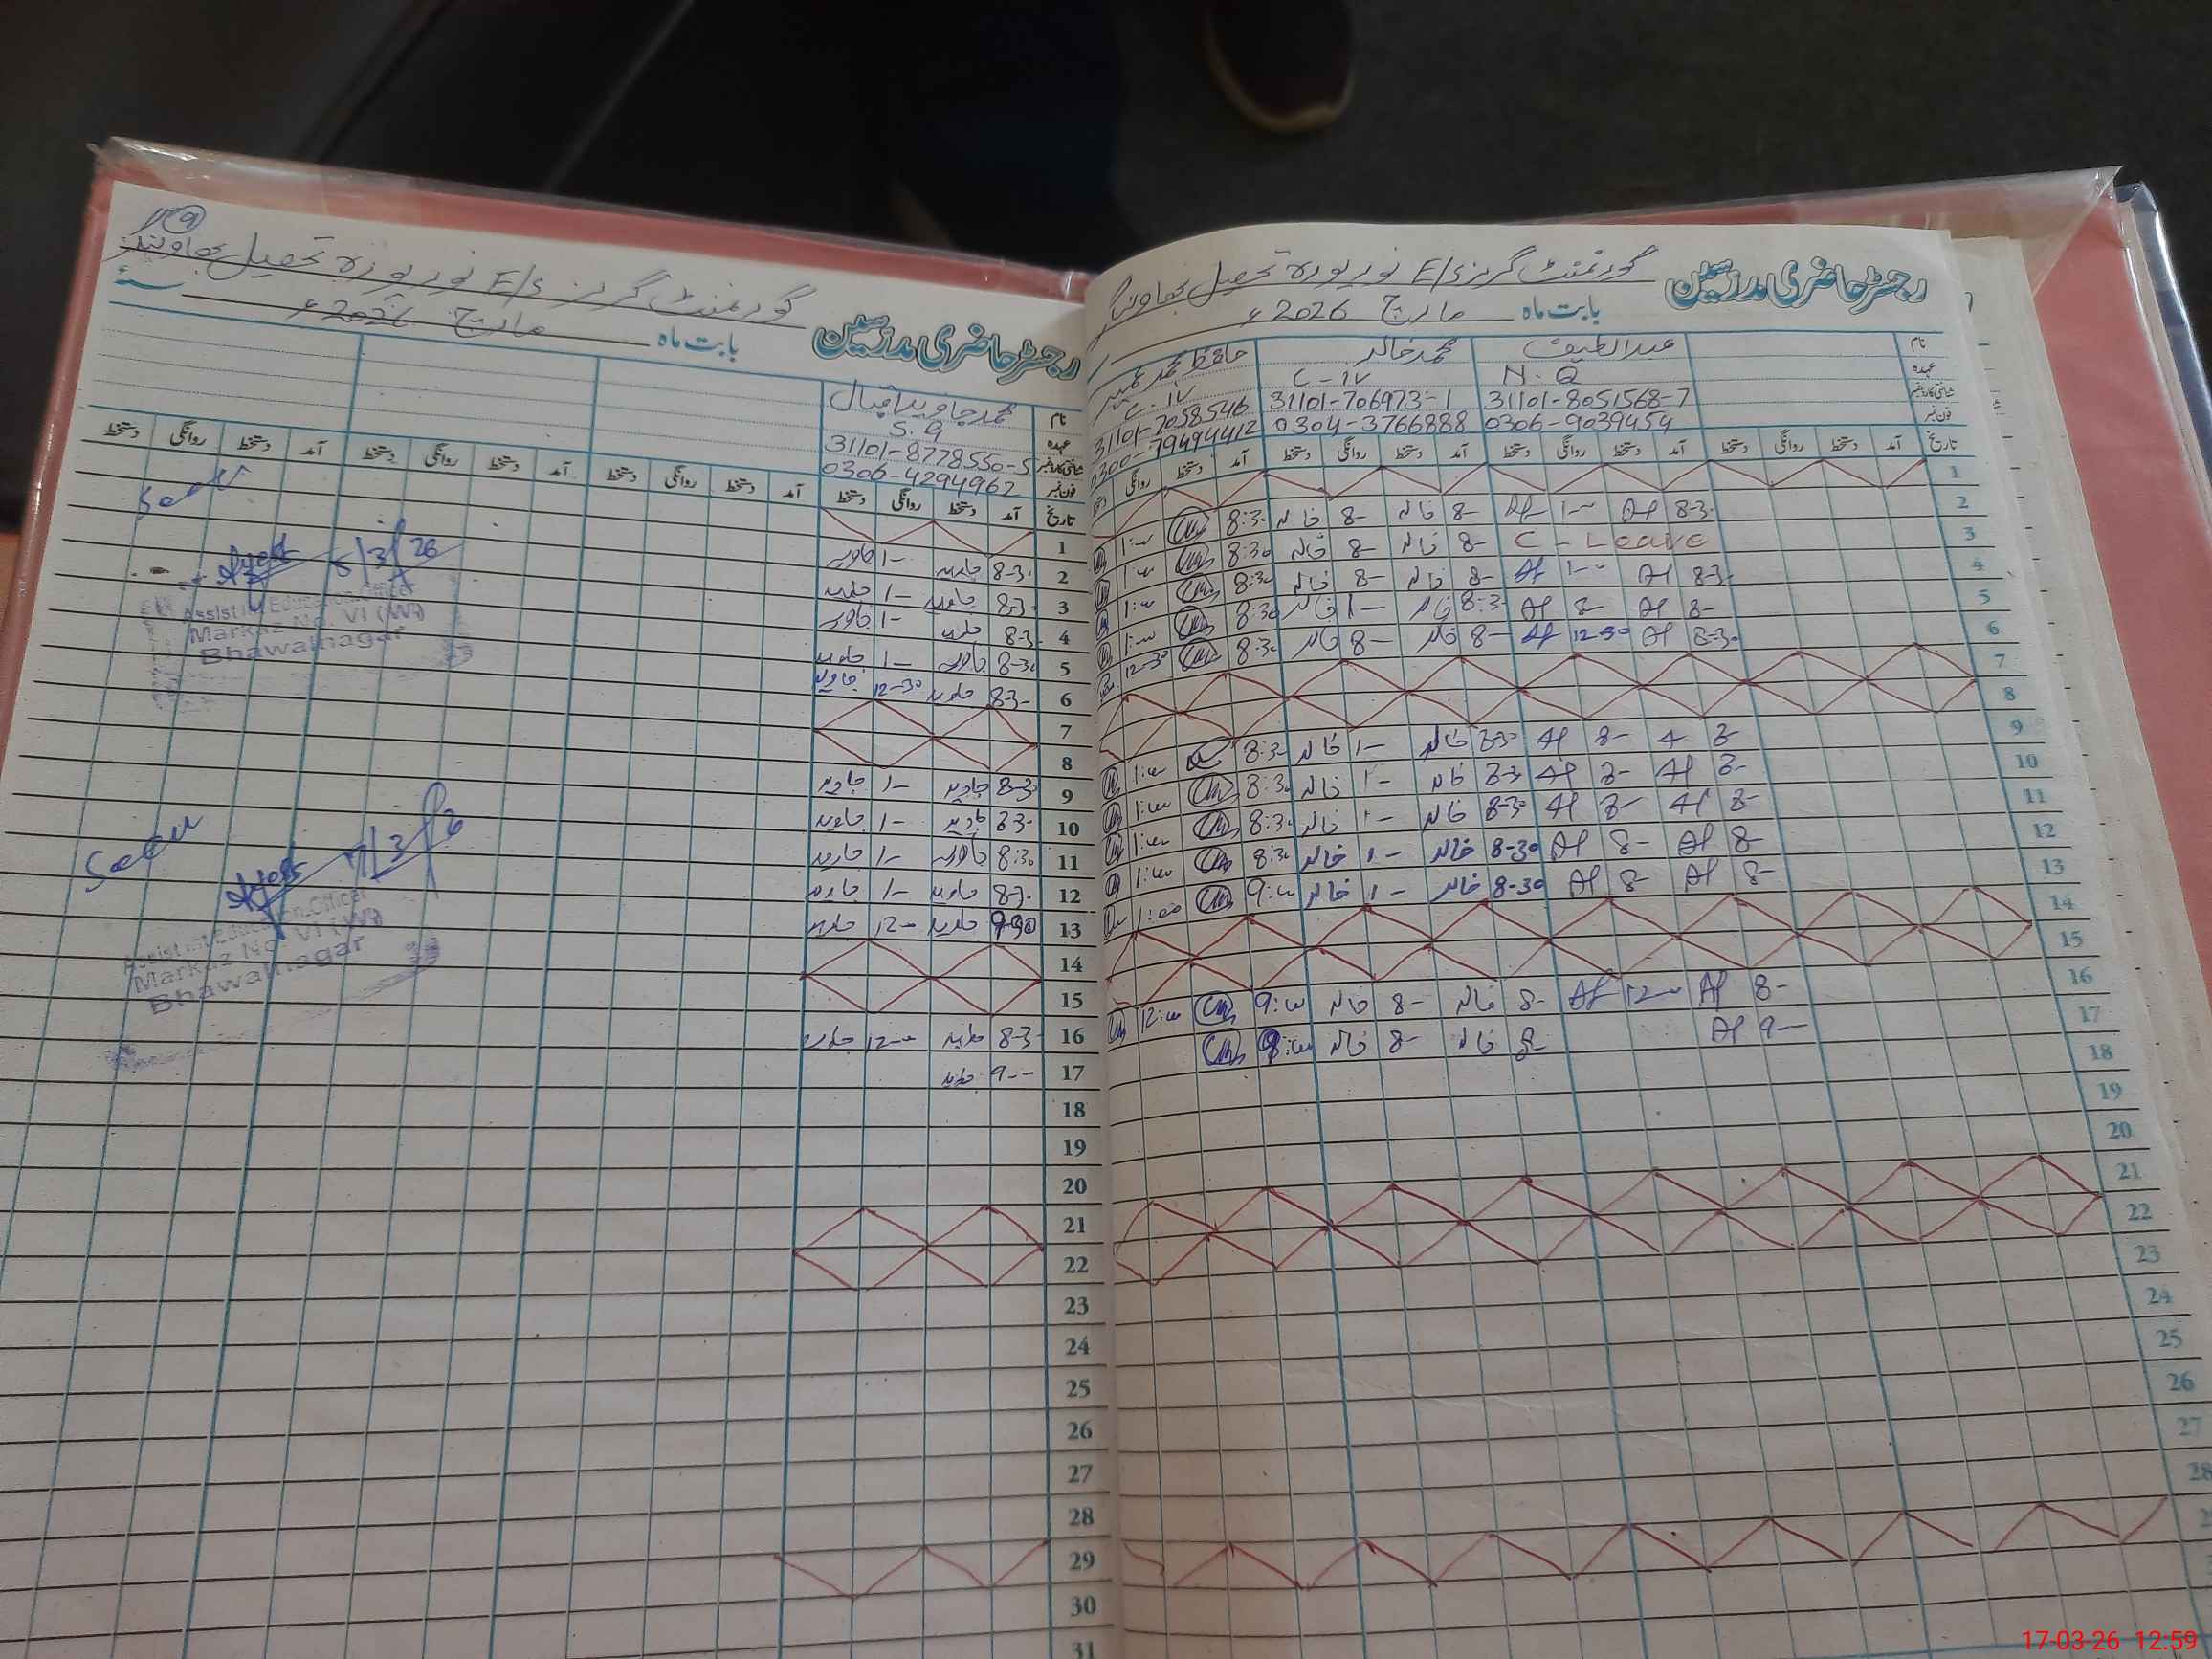 رجسٹر حاضری مدرسین گورنمنٹ گرلز E/S نور پورہ تحصیل بہاولنگر
بابت ماہ مارچ 2026ء
نام عبداللطیف محمد خالد حافظ محمد عمیر
عہدہ N.Q C-IV C-IV
شناختی کارڈ نمبر 31101-8051568-7 31101-706973-1 31101-7058546
فون نمبر 0306-9039454 0304-3766888 0300-79494412
تاریخ آمد دستخط روانگی دستخط آمد دستخط روانگی دستخط آمد دستخط روانگی دستخط آمد دستخط روانگی
1
2 8-3. Af 1-- Af 8- خالد 8- خالد 8:3.
3 C-Leave 8- خالد 8- خالد 8:30 1:00
4 8-3. Af 1-- Af 8- خالد 8- خالد 8:30 1:00
5 8- Af 8- Af 8:3. خالد 1- خالد 8:30 1:00
6 8-30 Af 12-30 Af 8- خالد 8- خالد 8:30 12-30
7
8
9 8- A 8- Af 8-30 خالد 1- خالد 8:30 1:00
10 8- Af 8- Af 8-3. خالد 1- خالد 8:30 1:00
11 8- Af 8- Af 8-30 خالد 1- خالد 8:30 1:00
12 8- Af 8- Af 8-30 خالد 1- خالد 8:30 1:00
13 8- Af 8- Af 8-30 خالد 1- خالد 9:00 1:00
14
15
16 8- Af 12-- Af 8- خالد 8- خالد 9:00 12:00
17 9-- Af 8- خالد 8- خالد
18
19
20
21
22
23
24
25
26
27
28
9
رجسٹر حاضری مدرسین گورنمنٹ گرلز E/S نور پورہ تحصیل بہاولنگر
بابت ماہ مارچ 2026ء سنہ
نام محمد جاوید اقبال
عہدہ S.g
شناختی کارڈ نمبر 31101-8778550-5
فون نمبر 0306-4294962
تاریخ آمد دستخط روانگی دستخط آمد دستخط روانگی دستخط آمد دستخط روانگی دستخط آمد دستخط روانگی دستخط
1
2 8-3. جاوید 1-- جاوید
3 8-3. جاوید 1- جاوید
4 8-3. جاوید 1- جاوید
5 8-30 جاوید 1- جاوید
6 8-3. جاوید 12-30 جاوید
7
8
9 8-3. جاوید 1- جاوید
10 8-3. جاوید 1- جاوید
11 8:30 جاوید 1- جاوید
12 8-3. جاوید 1- جاوید
13 جاوید 12-- جاوید
14
15
16 8-3. جاوید 12-- جاوید
17 9-- جاوید
18
19
20
21
22
23
24
25
26
27
28
29
30
31
Seen
5/3/26
Assistant Education Officer
Markaz No. VI (W)
Bhawalnagar
Seen
Assistant Education Officer
Markaz No. VI (W)
Bhawalnagar
17-03-26 12:59